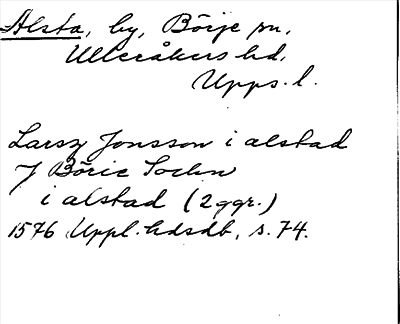 Alsta, by, Börje sn,
Ulleråkers hd,
Upps. l.
Larsz Jonsson i alstad
J Börie Sochn
i alstad (2 ggr.)
1576 Uppl. hdsdb, s. 74.